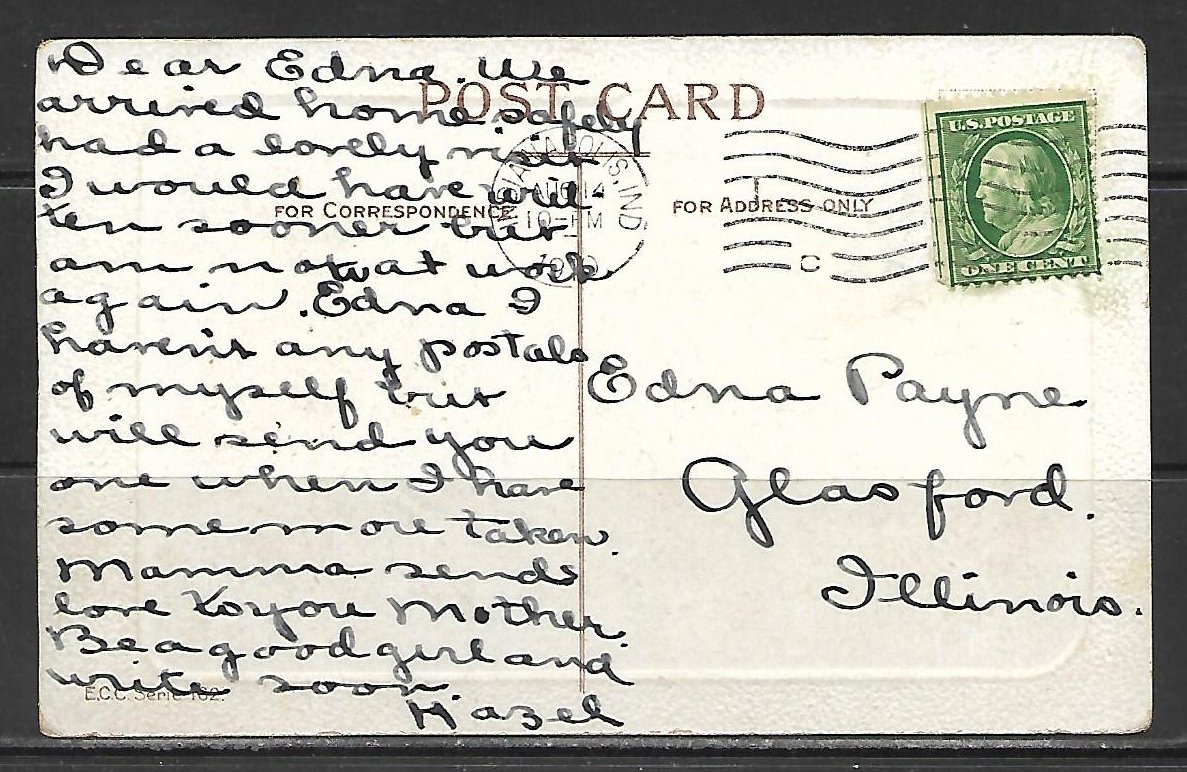 Dear Edna. We
arrived home safely
had a lovely visit
I would have writ
ten sooner but
am now at work
again. Edna I
haven't any postals
of myself but
will send you
one when I have
some more taken.
Mamma sends
love to you Mother.
Be a good girl and
write soon.
Hazel
E.C.C. Serie 162.
POST CARD
FOR CORRESPONDENCE
FOR ADDRESS ONLY
IANAPOLIS, IND
AUG 14
10-PM
C
U.S. POSTAGE
ONE CENT
Edna Payne
Glasford.
Illinois.